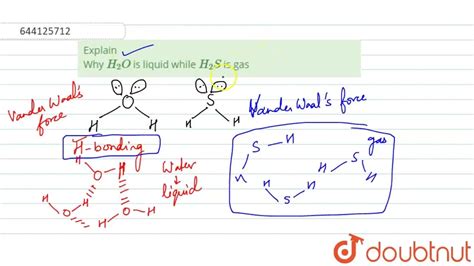 644125712
Explain
Why H2O is liquid while H2S is gas
Vander Waal's
force
O
H H
S
H H
Vander Waal's force
H-bonding
Water
liquid
H H
O
H
O
H
O H
H
S H
H
gas
S
H
H H
S
H
doubtnut